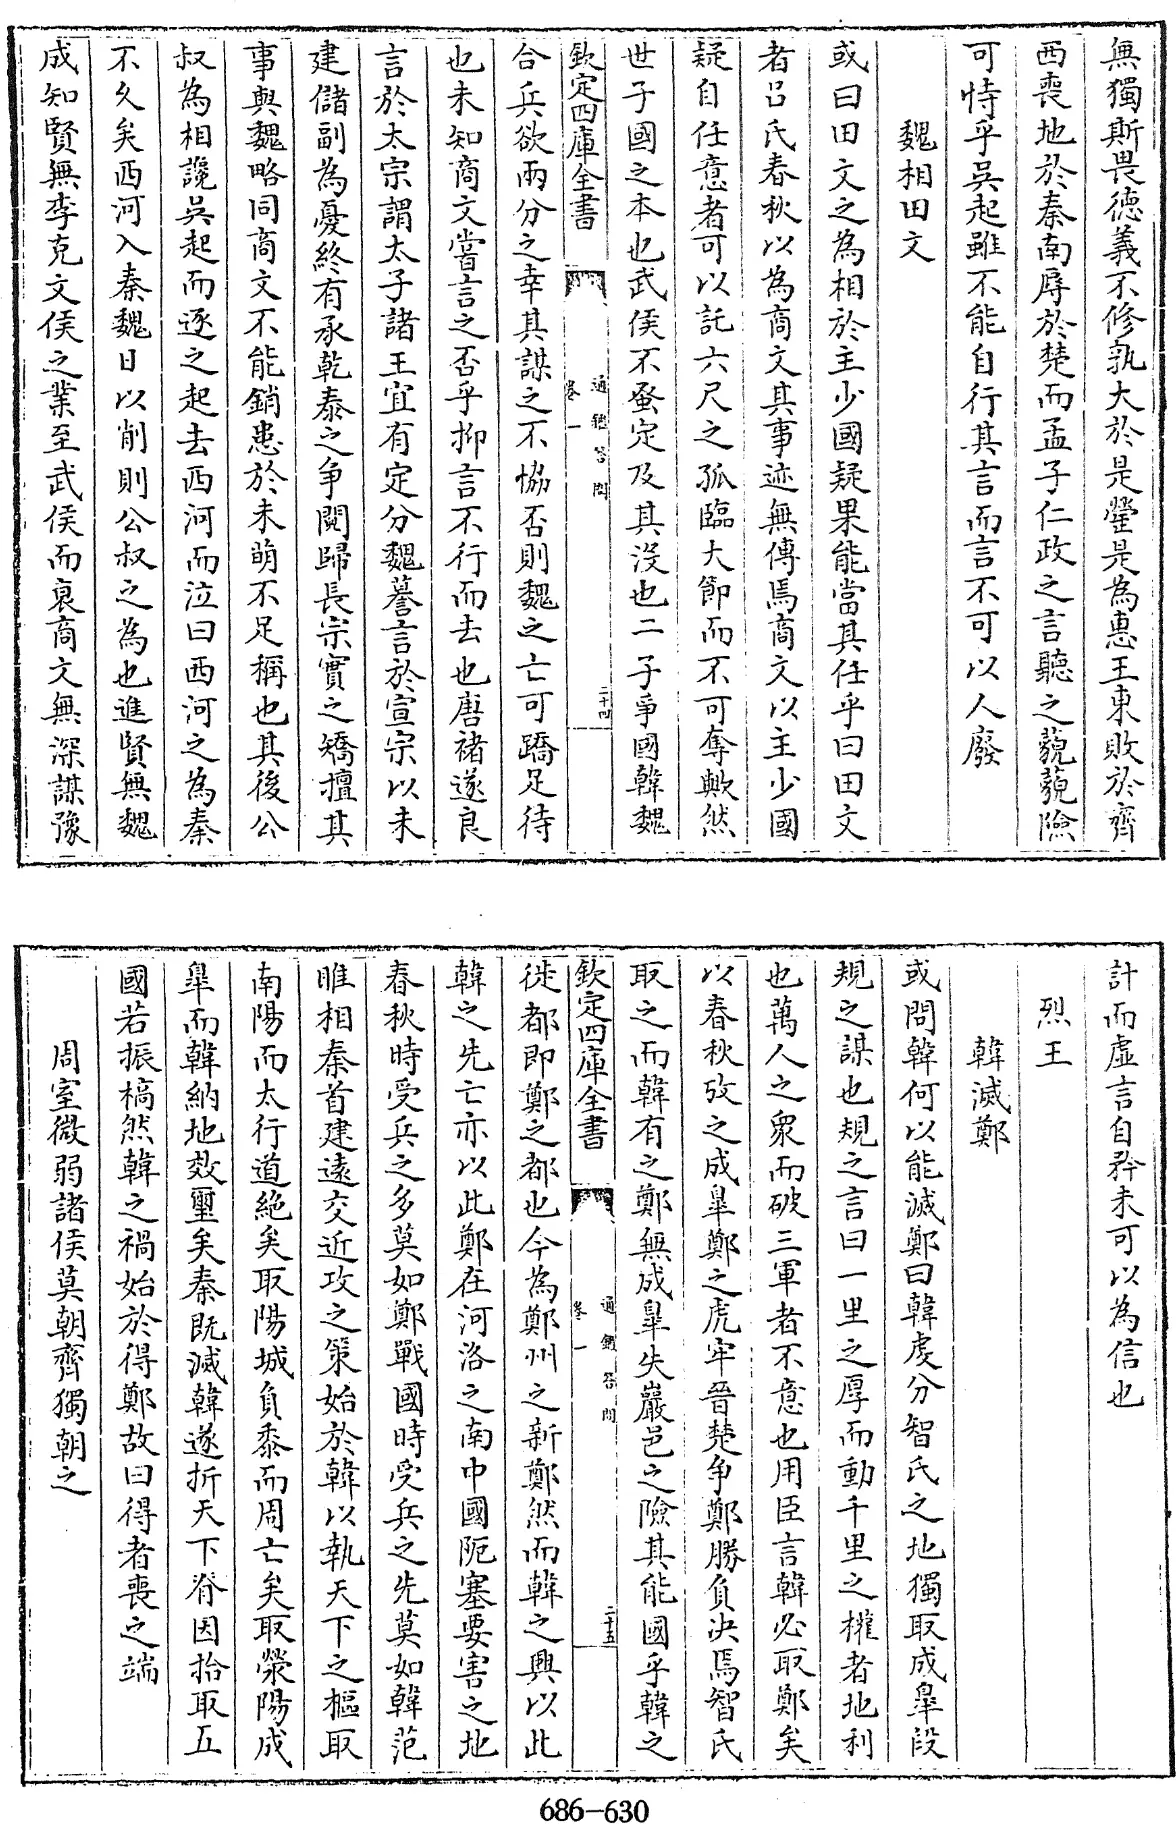 無獨斯畏德義不修孰大於是瑩是為惠王東敗於齊
西喪地於秦南辱於楚而孟子仁政之言聽之藐藐險
可恃乎吳起雖不能自行其言而言不可以人廢
魏相田文
或曰田文之為相於主少國疑果能當其任乎曰田文
者吕氏春秋以為商文其事迹無傳焉商文以主少國
疑自任意者可以託六尺之孤臨大節而不可奪歟然
世子國之本也武侯不蚤定及其沒也二子爭國韓魏
欽定四庫全書
通鑑答問
卷一
二十四
合兵欲兩分之幸其謀之不恊否則魏之亡可蹻足待
也未知商文嘗言之否乎抑言不行而去也唐褚遂良
言於太宗謂太子諸王宜有定分魏謩言於宣宗以未
建儲副為憂終有承乾泰之争䦧歸長宗實之矯擅其
事與魏略同商文不能銷患於未萌不足稱也其後公
叔為相䜛吳起而逐之起去西河而泣曰西河之為秦
不久矣西河入秦魏日以削則公叔之為也進賢無魏
成知賢無李克文侯之業至武侯而衰商文無深謀豫
計而虛言自矜未可以為信也
烈王
韓滅鄭
或問韓何以能滅鄭曰韓虔分智氏之地獨取成臯段
規之謀也規之言曰一里之厚而動千里之權者地利
也萬人之衆而破三軍者不意也用臣言韓必取鄭矣
以春秋攷之成臯鄭之虎牢晉楚争鄭勝負决焉智氏
取之而韓有之鄭無成臯失巖邑之險其能國乎韓之
欽定四庫全書
通鑑答問
卷一
二十五
徙都即鄭之都也今為鄭州之新鄭然而韓之興以此
韓之先亡亦以此鄭在河洛之南中國阨塞要害之地
春秋時受兵之多莫如鄭戰國時受兵之先莫如韓范
雎相秦首建遠交近攻之策始於韓以執天下之樞取
南陽而太行道絶矣取陽城負黍而周亡矣取滎陽成
臯而韓納地效璽矣秦既滅韓遂折天下脊因拾取五
國若振槁然韓之禍始於得鄭故曰得者喪之端
周室微弱諸侯莫朝齊獨朝之
686-630